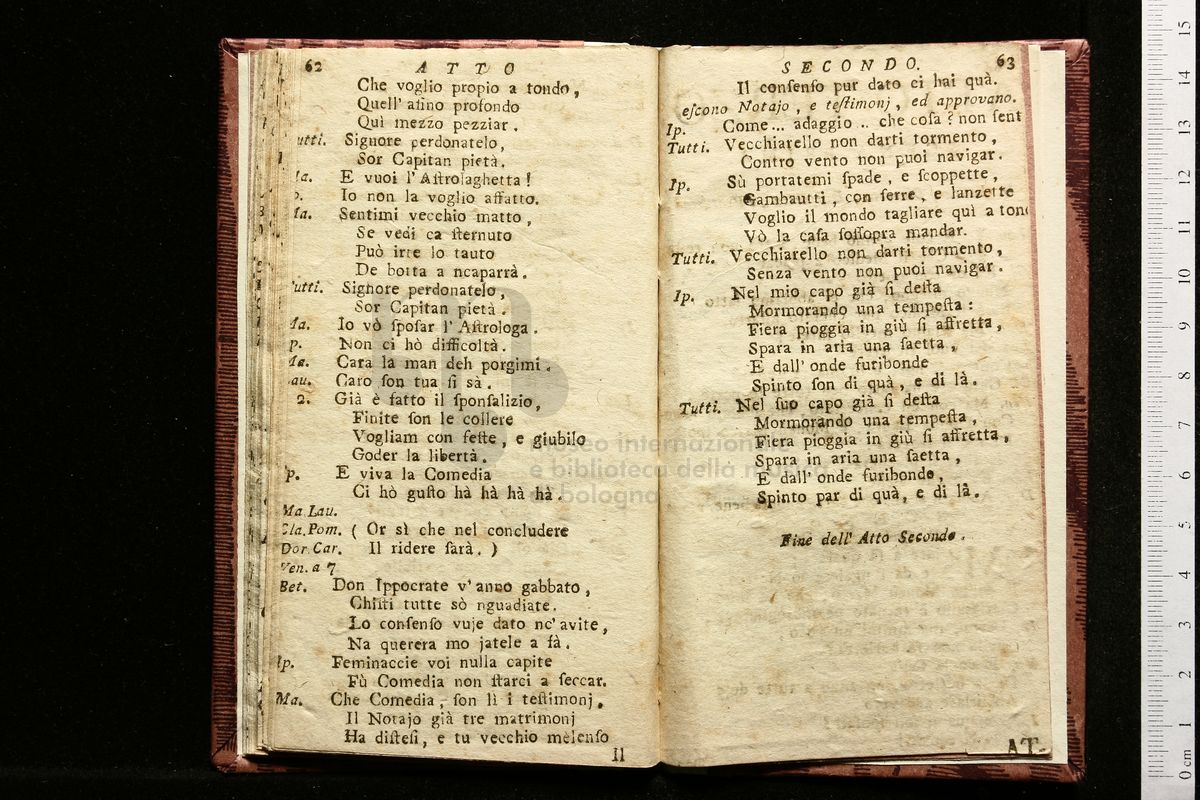 62 ATTO
Che voglio propio a tondo,
Quell' asino profondo
Quì mezzo pezziar.
utti. Signore perdonatelo,
Sor Capitan pietà.
Ia. E vuoi l'Aſtrolaghetta!
p. Io non la voglio affatto.
Ma. Sentimi vecchio matto,
Se vedi ca ſternuto
Può irte lo tauto
De botta a ncaparrà.
utti. Signore perdonatelo,
Sor Capitan pietà.
Ma. Io vò ſpoſar l'Aſtrologa.
p. Non ci hò difficoltà.
Ma. Cara la man deh porgimi.
au. Caro ſon tua ſi sà.
2. Già è fatto il ſponſalizio,
Finite ſon le collere
Vogliam con feſte, e giubilo
Goder la libertà.
p. E viva la Comedia
Ci hò guſto hà hà hà hà.
Ma. Lau.
Cla. Pom. ( Or sì che nel concludere
Dor. Car. Il ridere ſarà. )
Ven. a 7
Bet. Don Ippocrate v'anno gabbato,
Chiſti tutte sò nguadiate.
Lo conſenſo vuje dato nc'avite,
Na querera mo jatele a fà.
Ip. Feminaccie voi nulla capite
Fù Comedia non ſtarci a ſeccar.
Ma. Che Comedia, ſon lì i teſtimonj,
Il Notajo già tre matrimonj
Ha diſteſi, e tu vecchio melenſo
Il
SECONDO. 63
Il conſenſo pur dato ci hai quà.
eſcono Notajo, e teſtimonj, ed approvano.
Ip. Come... adaggio .. che coſa? non ſent
Tutti. Vecchiarello non darti tormento,
Contro vento non puoi navigar.
Ip. Sù portatemi ſpade, e ſcoppette,
Gambautti, con ferre, e lanzette
Voglio il mondo tagliare quì a tond
Vò la caſa ſoſſopra mandar.
Tutti. Vecchiarello non darti tormento,
Senza vento non puoi navigar.
Ip. Nel mio capo già ſi deſta
Mormorando una tempeſta:
Fiera pioggia in giù ſi affretta,
Spara in aria una ſaetta,
E dall' onde furibonde
Spinto ſon di quà, e di là.
Tutti. Nel ſuo capo già ſi deſta
Mormorando una tempeſta,
Fiera pioggia in giù ſi affretta,
Spara in aria una ſaetta,
E dall' onde furibonde,
Spinto par di quà, e di là.
Fine dell' Atto Secondo.
AT-
museo internazion
e biblioteca della m
di bologna
0 cm 1 2 3 4 5 6 7 8 9 10 11 12 13 14 15